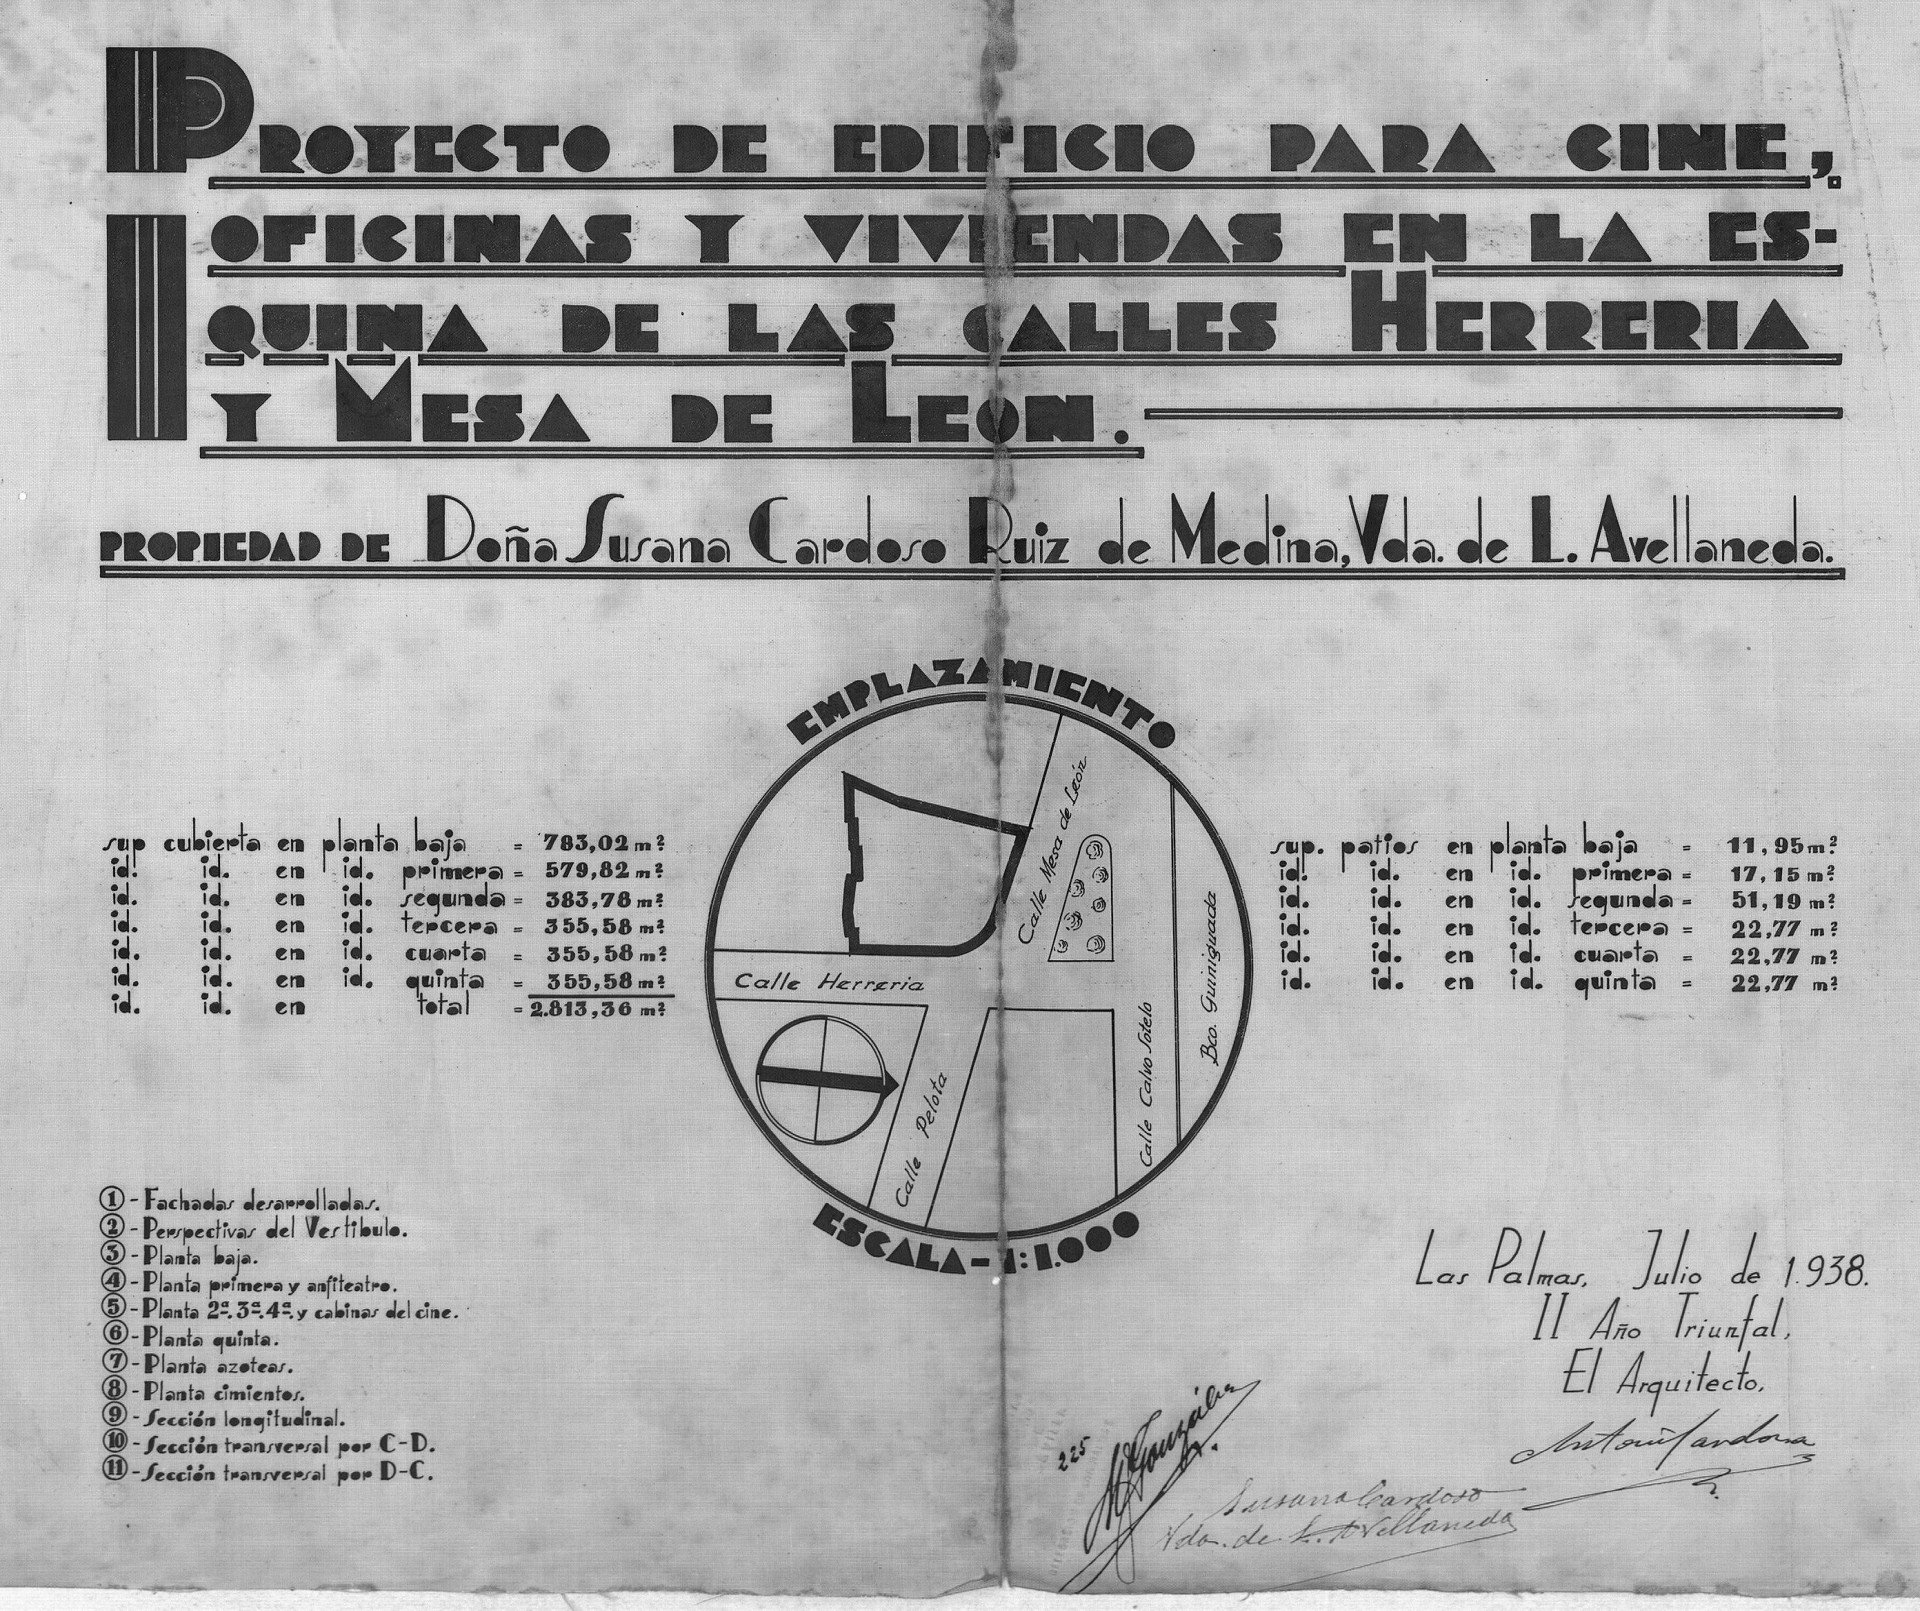 PROYECTO DE EDIFICIO PARA CINE,
OFICINAS Y VIVIENDAS EN LA ES-
QUINA DE LAS CALLES HERRERIA
Y MESA DE LEON.
PROPIEDAD DE Doña Susana Cardoso Ruiz de Medina, Vda. de L. Avellaneda.
EMPLAZAMIENTO
Calle Mesa de León
Calle Herreria
Calle Pelota
Calle Calvo Sotelo
Bco. Guiniguada
ESCALA-1:1.000
sup cubierta en planta baja = 783,02 m².
id. id. en id. primera = 579,82 m².
id. id. en id. segunda = 383,78 m².
id. id. en id. tercera = 355,58 m².
id. id. en id. cuarta = 355,58 m².
id. id. en id. quinta = 355,58 m².
id. id. en total = 2.813,36 m².
sup. patios en planta baja = 11,95 m².
id. id. en id. primera = 17,15 m².
id. id. en id. segunda = 51,19 m².
id. id. en id. tercera = 22,77 m².
id. id. en id. cuarta = 22,77 m².
id. id. en id. quinta = 22,77 m².
1 - Fachadas desarrolladas.
2 - Perspectivas del Vestibulo.
3 - Planta baja.
4 - Planta primera y anfiteatro.
5 - Planta 2ª. 3ª. 4ª. y cabinas del cine.
6 - Planta quinta.
7 - Planta azoteas.
8 - Planta cimientos.
9 - Sección longitudinal.
10 - Sección transversal por C-D.
11 - Sección transversal por D-C.
Las Palmas, Julio de 1.938.
II Año Triunfal.
El Arquitecto,
Antonio Cardona
225
González
Susana Cardoso
Vda. de L. Avellaneda